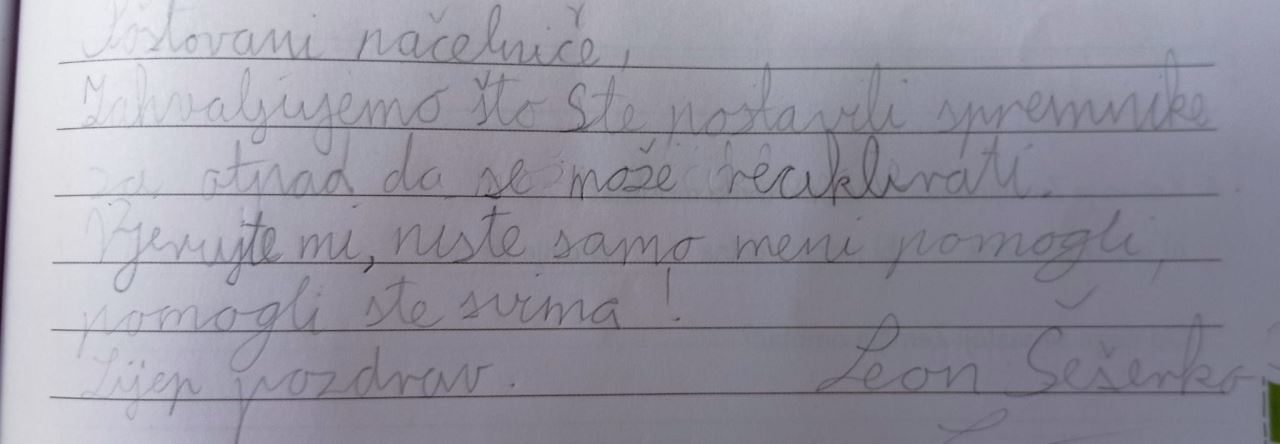 Poštovani načelniče,
Zahvaljujemo što ste postavili spremnike
za otpad da se može reciklirati.
Vjerujte mi, niste samo meni pomogli,
pomogli ste svima!
Lijep pozdrav. Leon Sešerko